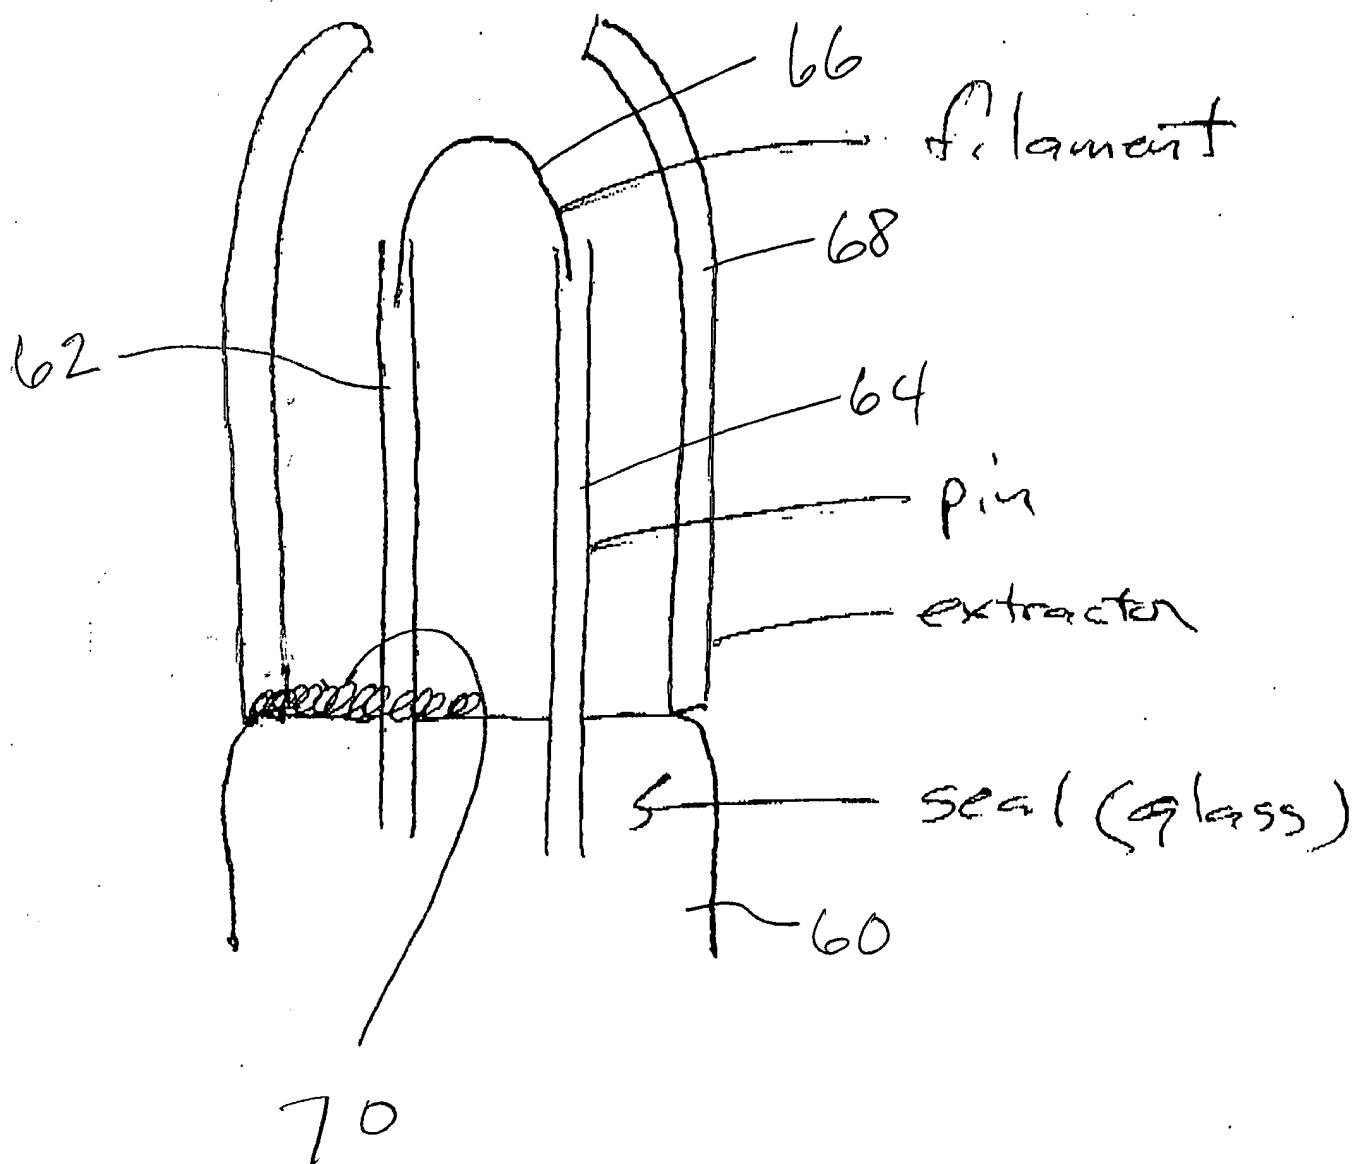 66
filament
68
62
64
pin
extractor
seal (glass)
60
70